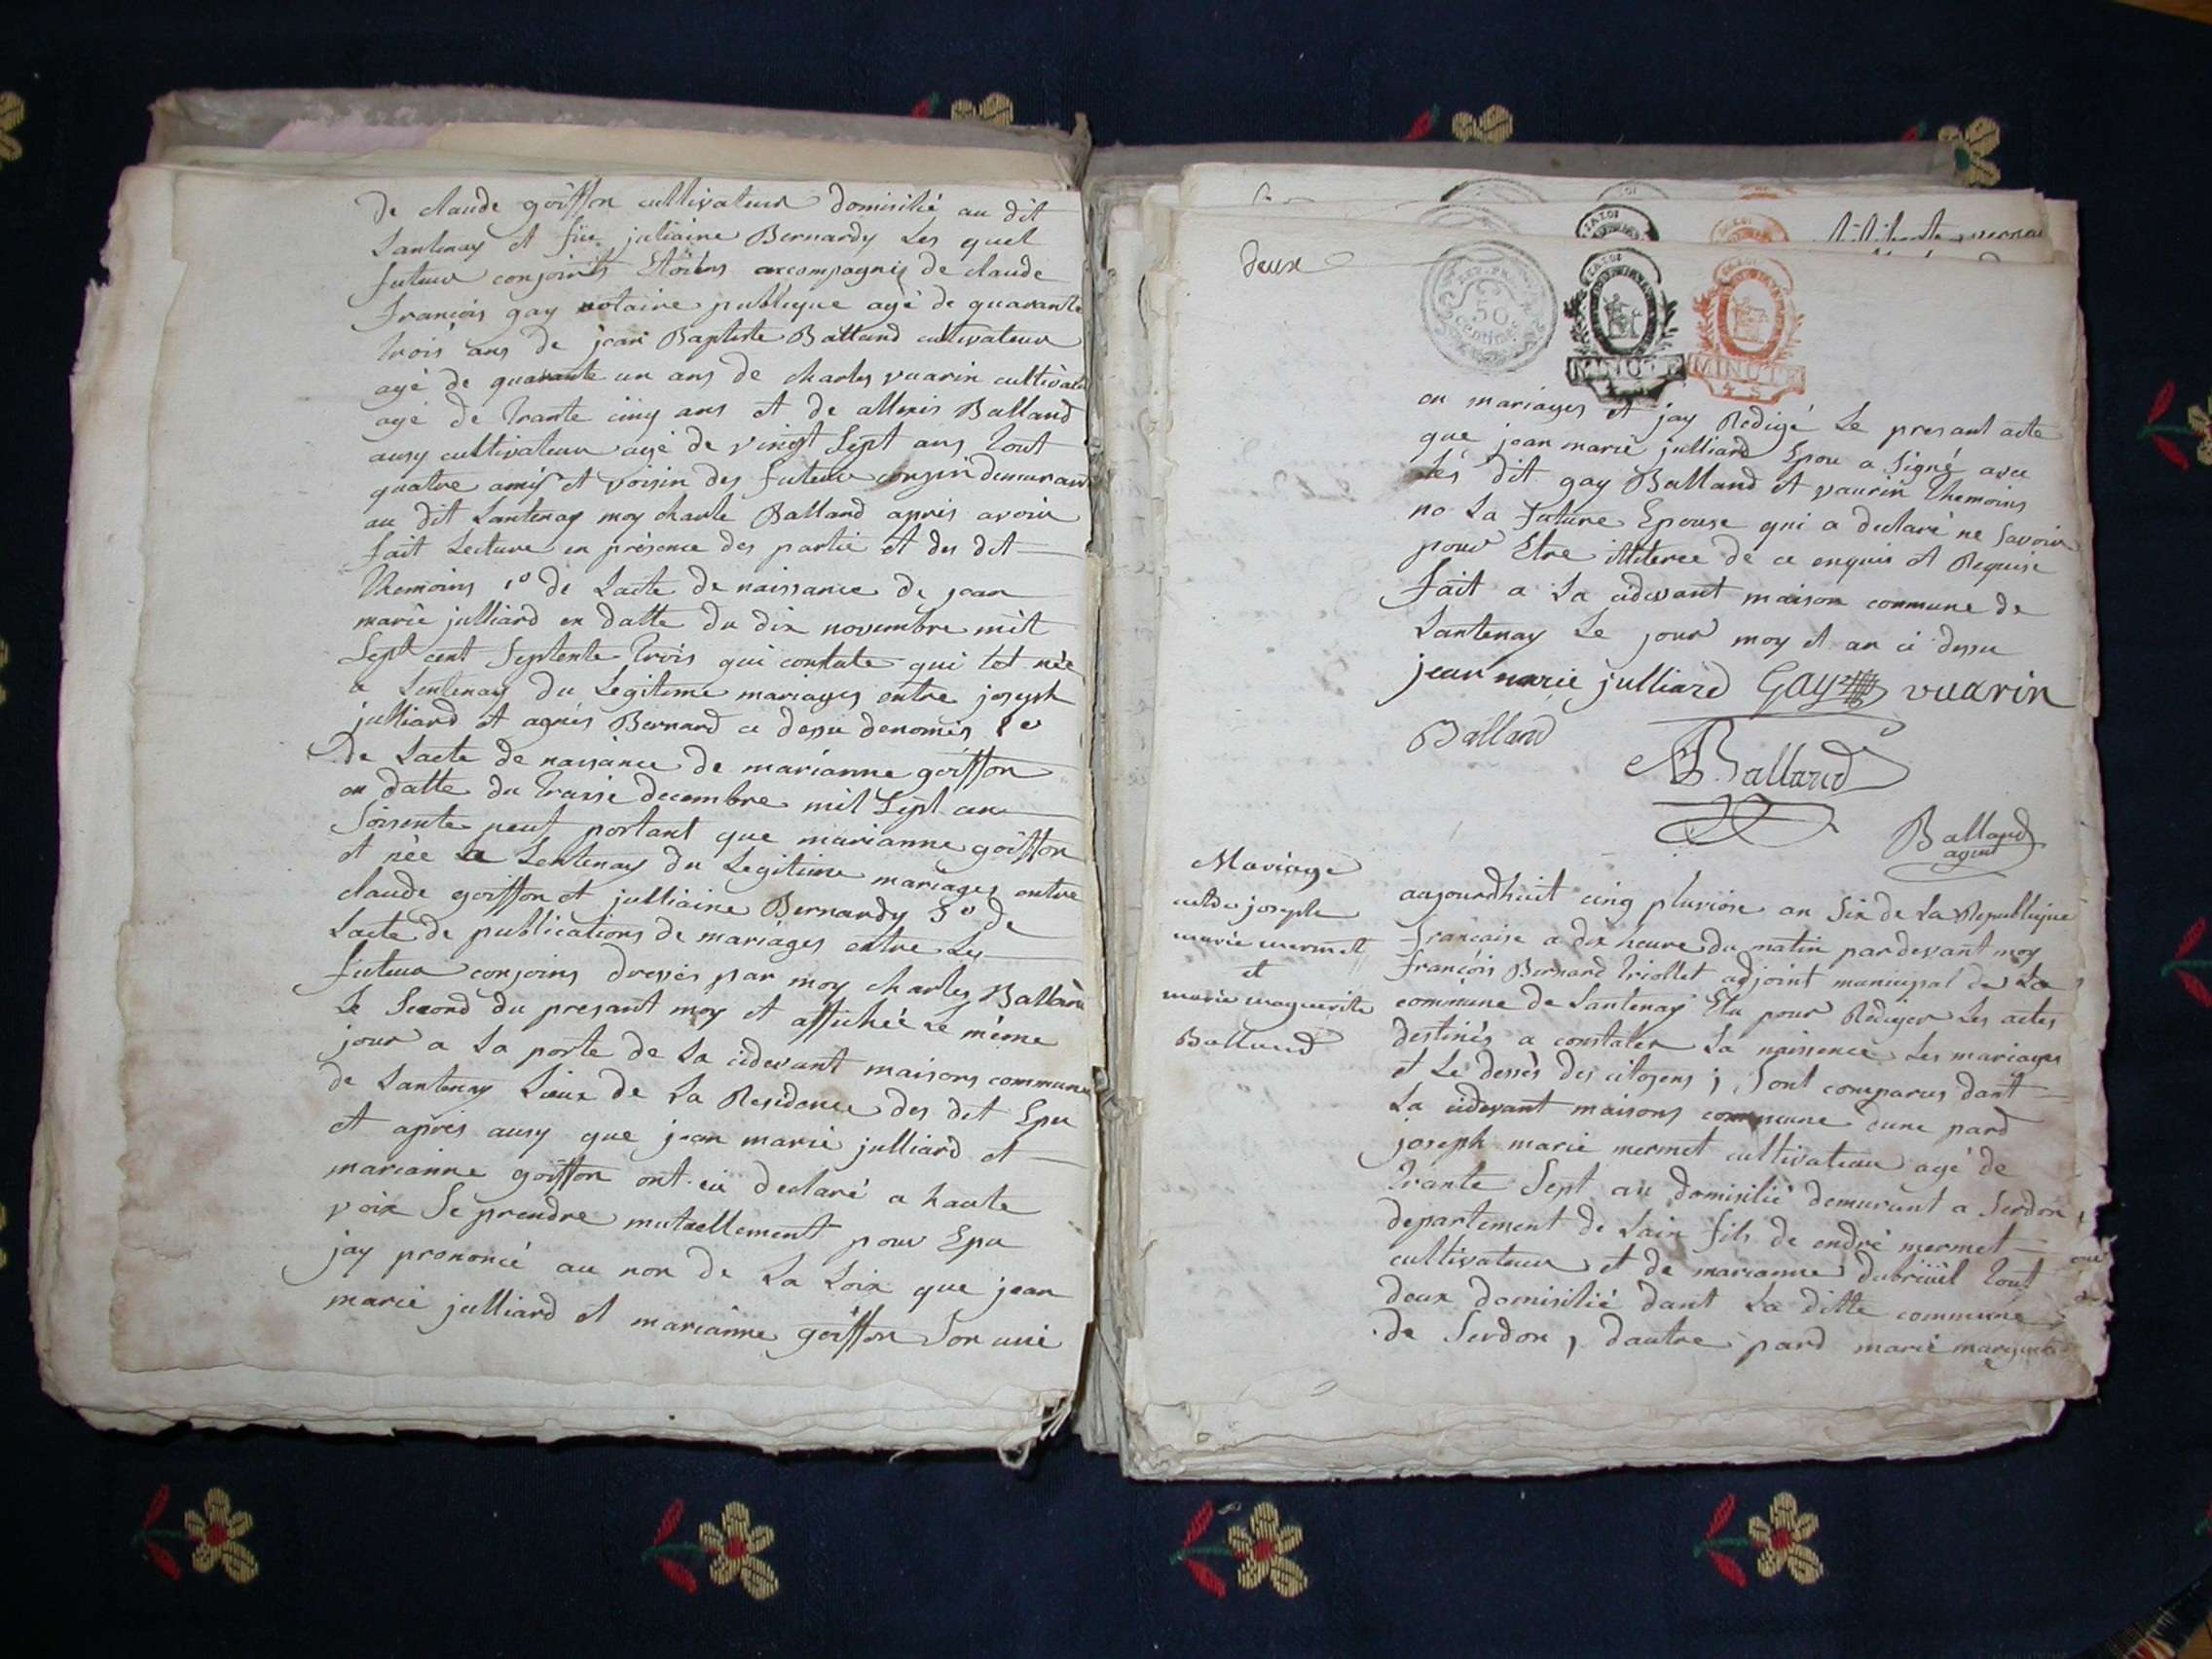 de claude goiffon cultivateur domisilié au dit
Lantenay et füe juliaine Bernardy Les quel
futeur conjoints Etoiens accompagnis de claude
francois gay notaire publique agé de quarante
trois ans de jean Baptiste Balland cultivateur
agé de quarante un ans de charles vuarin cultivat
agé de trante cinq ans et de allexis Balland
ausy cultivateur agé de vingt Sept ans tout
quatre amis et voisin des futeur conjoin demurant
au dit Lantenay moy charle Balland apris avoir
fait Lecture en présence des partie et des dit
themoins 1º de Lacte de naissance de jean
marie julliard en datte du dix novembre mil
Sept cent Septente trois qui constate qui tet née
a Lentenay du Legitime mariages entre joseph
julliard et agnés Bernard ci dessu denomés 2º
de Lacte de naisance de marianne goiffon
en datte du traise decembre mil Sept cen
Soisente neuf portant que marianne goiffon
et née a Lentenay du Legitime mariages entre
claude goiffon et julliaine Bernardy 3º de
Lacte de publications de mariages entre Les
futeur conjoins dressés par moy charles Balland
Le Second du presant moy et affichée Le même
jour a La porte de La cidevant maisons commune
de Lantenay Lieux de La Residence des dit Epu
et aprés ausy que jean marie julliard et
marianne goiffon ont eü declaré a haute
voix Se prendre mutuellement pour Epu
jay prononcé au non de La Loix que jean
marie julliard et marianne goiffon Son uni
deux
REP. FRA
50
centimes
MINUTE
45
MINUTE
45
en mariages et jay Redigé Le presant acte
que jean marie julliard Epou a Signé avec
Les dit gay Balland et vaurin themoins
no La future Epouse qui a declaré ne Savoir
pour Etre illiteree de ce enquis et Requise
fait a La cidevant maison commune de
Lantenay Le jour moy et an ci dessu
jean marie julliard Gay vuarin
Balland
Balland
Balland
agent
Mariage
entre joseph
marie mermet
et
marie marguerite
Balland
aujourdhuit cinq pluviose an Six de La Republique
francaise a dix heure du matin pardevant moy
françois Bernard triollet adjoint municipal de La
commune de Lantenay Elu pour Rediger Les actes
destinés a constater La naissence Les mariages
et Le dessés des citoyens ; Sont comparus dant
La cidevant maisons commune dune pard
joseph marie mermet cultivateur agé de
trante Sept an domisilié demurant a Serdon
departement de Lain fils de endré mermet
cultivateur et de marianne dubriüel tout
deux domisilié dant La ditte commune
de Serdon , dautre pard marie marguerite